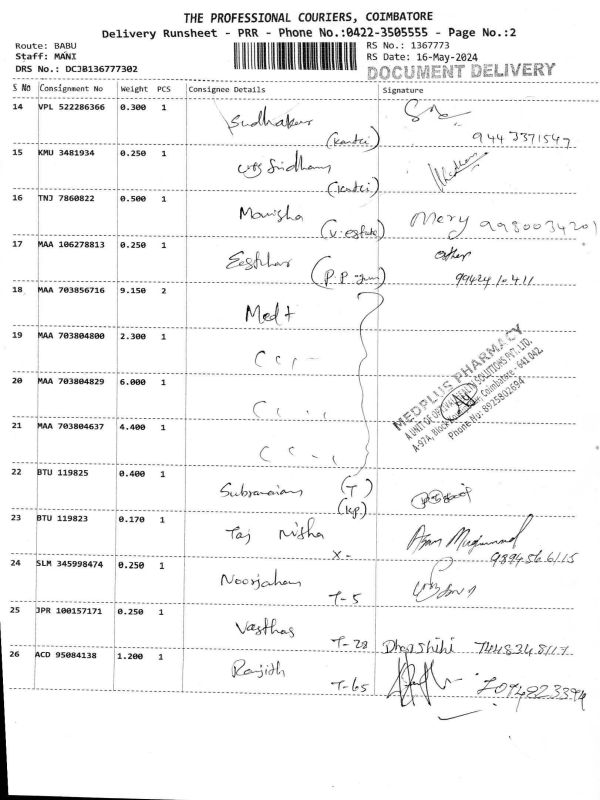 THE PROFESSIONAL COURIERS, COIMBATORE
Delivery Runsheet - PRR - Phone No.:0422-3505555 - Page No.:2
Route: BABU
Staff: MANI
DRS No.: DCJB136777302
RS No.: 1367773
RS Date: 16-May-2024
DOCUMENT DELIVERY
S No Consignment No Weight PCS Consignee Details Signature
14 VPL 522286366 0.300 1 Sudhakar
9443371547
15 KMU 3481934 0.250 1 Sridhar
16 TNJ 7860822 0.500 1 Monisha (V. estate) Mery 9980034201
17 MAA 106278813 0.250 1
9942410411
18 MAA 703856716 9.150 2 Med+
19 MAA 703804800 2.300 1
20 MAA 703804829 6.000 1
21 MAA 703804637 4.400 1
MEDPLUS PHARMACY
A UNIT OF SOLUTIONS PVT. LTD.
Coimbatore - 641 042.
Phone No: 8925802694
22 BTU 119825 0.400 1 (T)
(kp)
23 BTU 119823 0.170 1 Taj Nisha X-
9894566115
24 SLM 345998474 0.250 1 Noorjahan T-5
25 JPR 100157171 0.250 1 T-28
26 ACD 95084138 1.200 1 Ranjith T-65